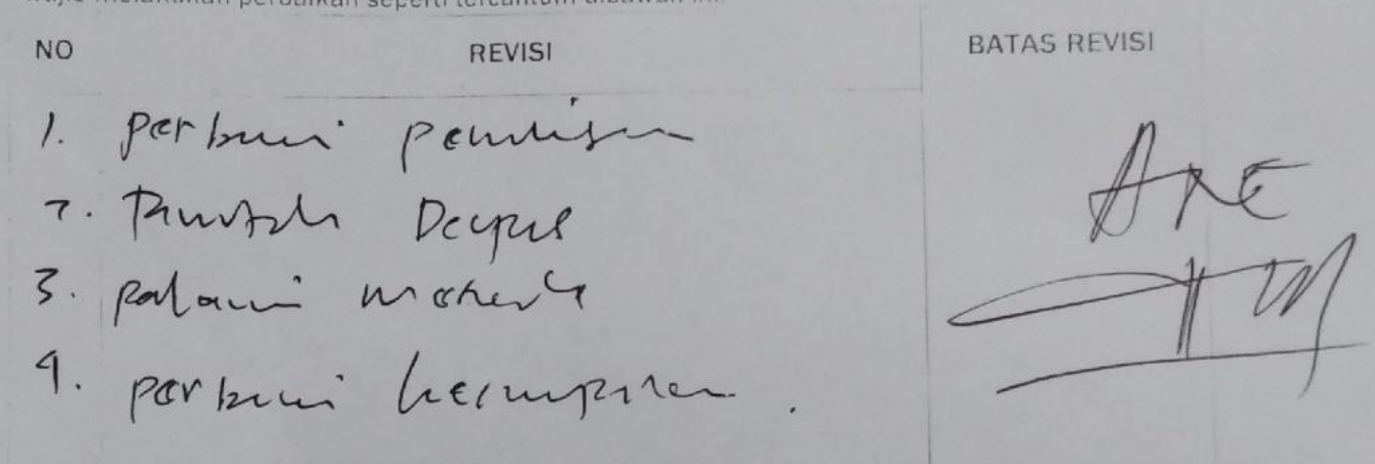 NO REVISI BATAS REVISI
1. perbaiki penulisan
2. Dapus
3. pelajari materi
4. perbaiki kesimpulan.